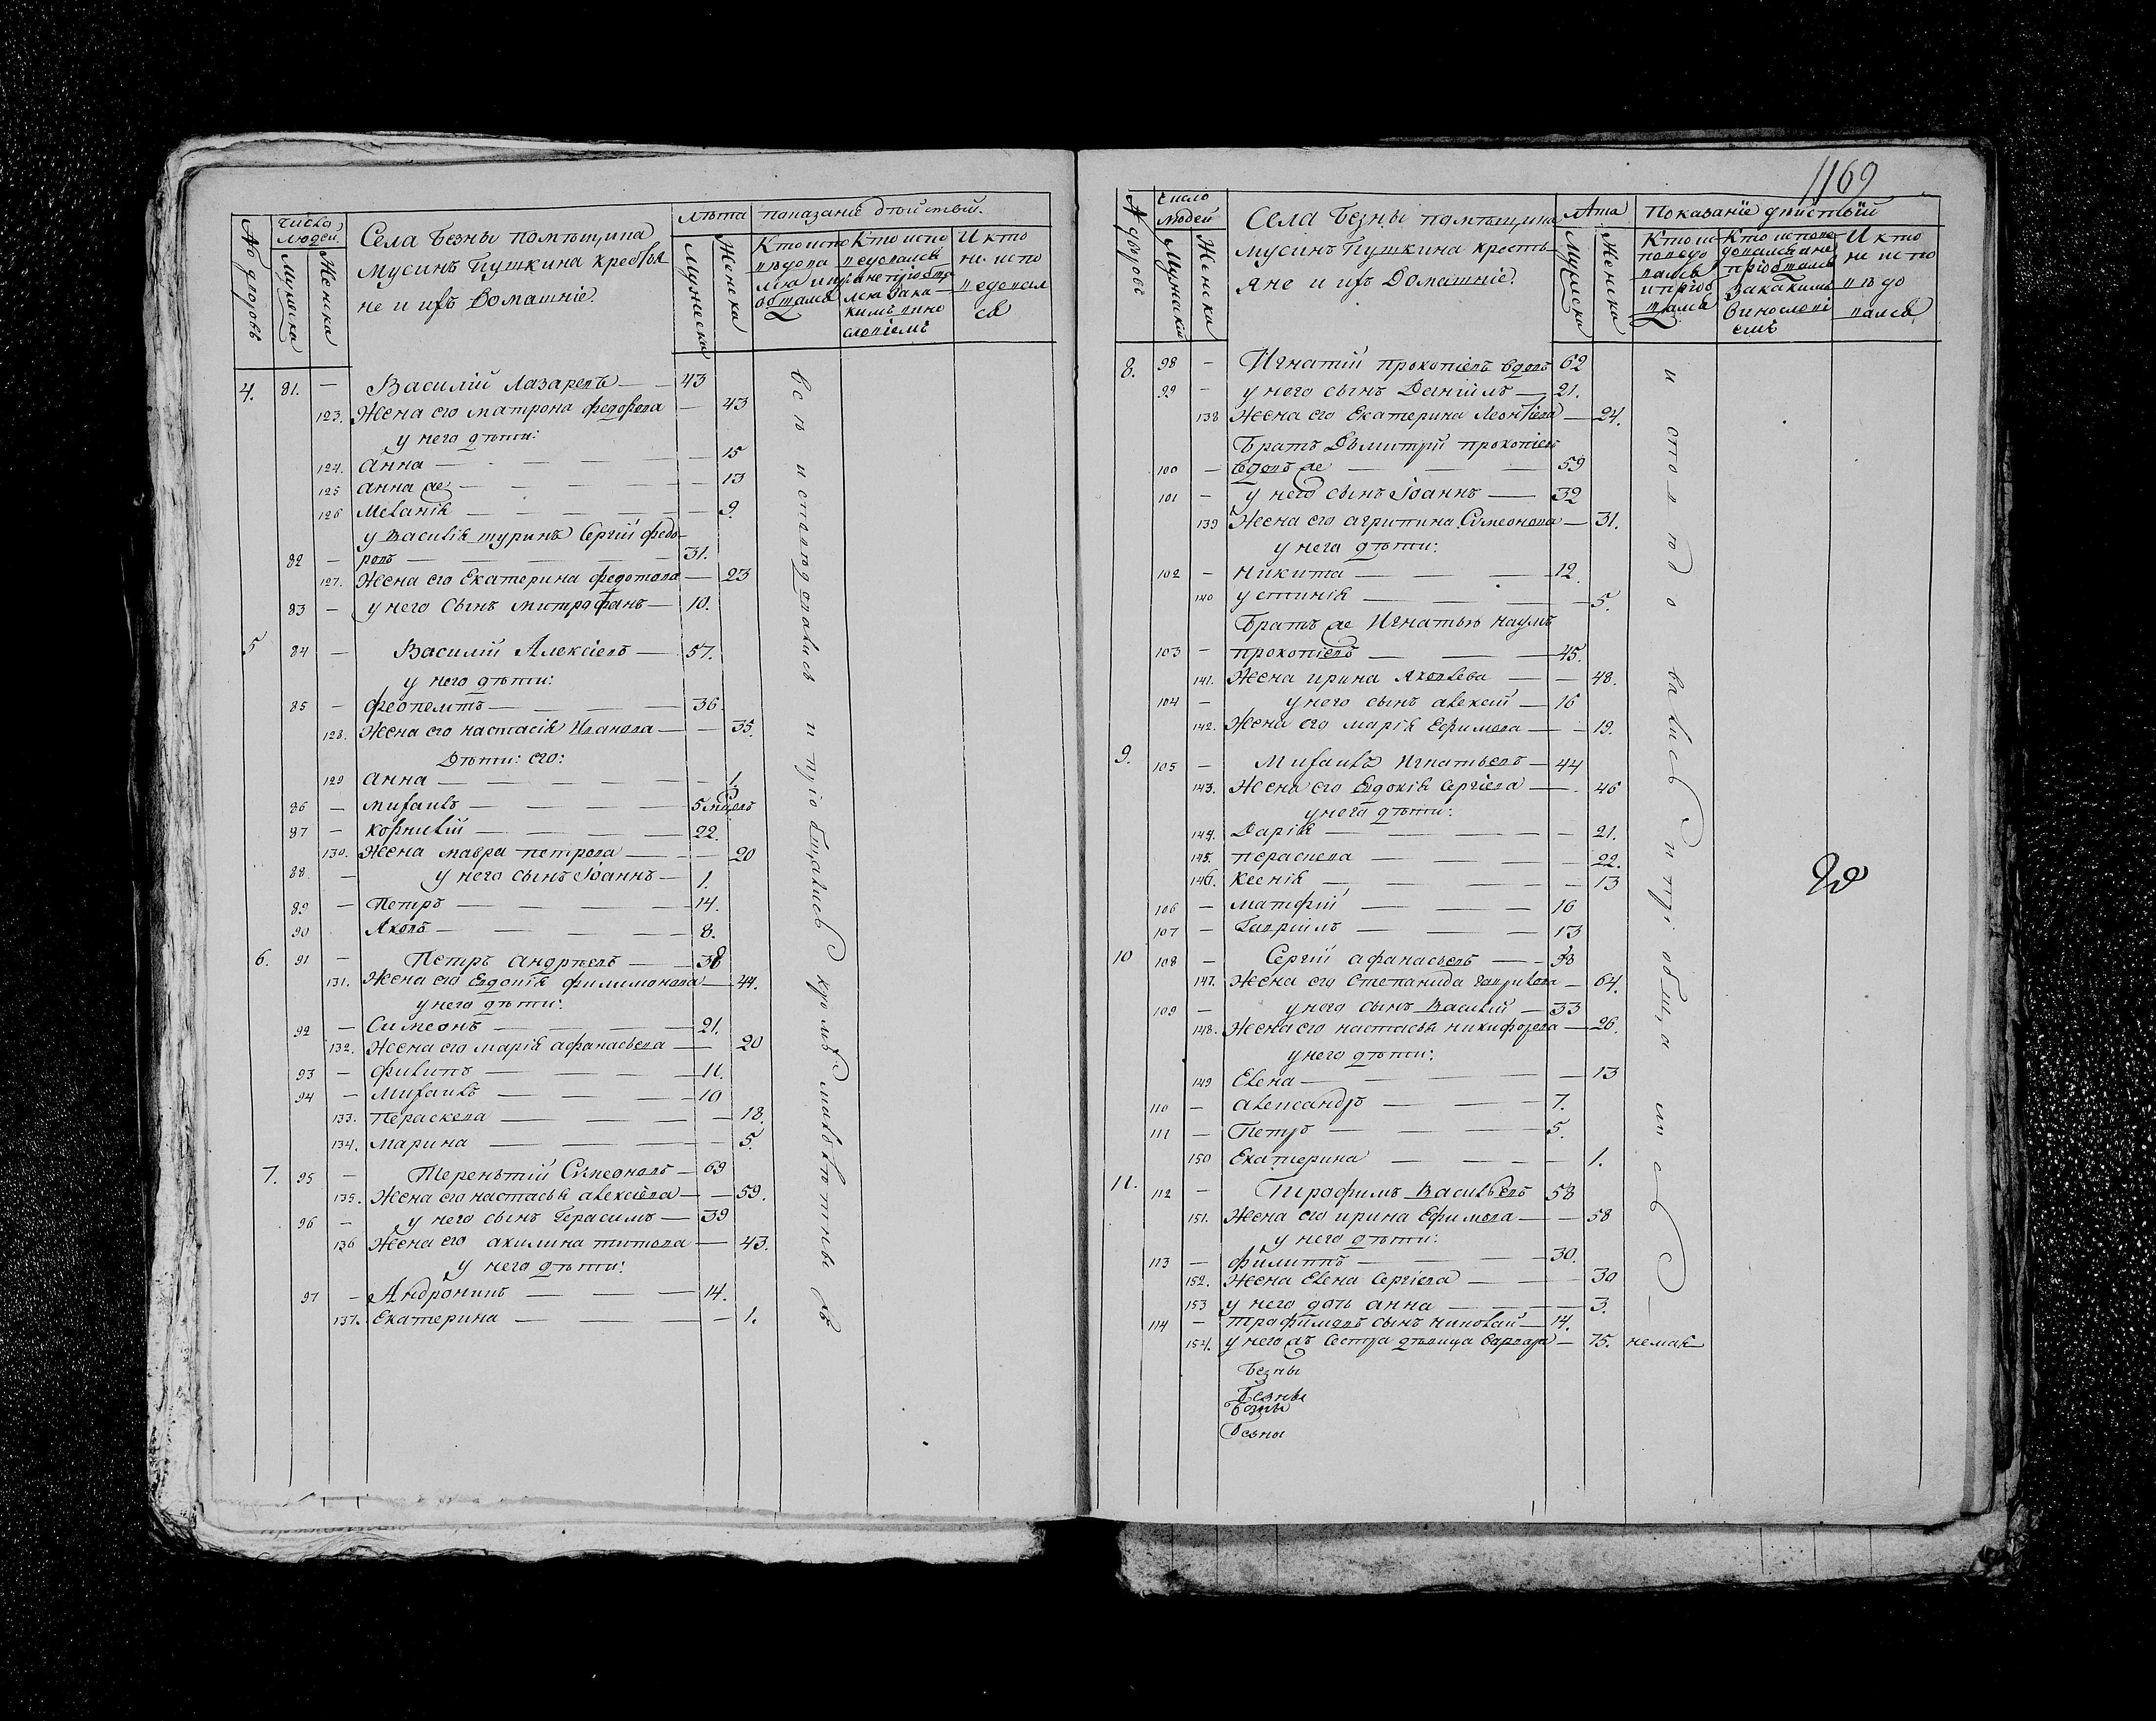 № дворовъ
Числа людей
Мужеска
Женска
Села Безны помѣщика
Мусинъ Пушкина крестья
не и ихъ Домашніе.
лѣта
Мужеска
Женска
показаніе действъ.
Кто испо
вѣдова
лся и прі
общался
Кто испо
ведовался
а не пріобща
лся и за ка
кимъ вино
словіемъ
И кто
не испо
ведовал
ся
4. 81. — Василій Лазаревъ — 43
123. Жена его матрона федорова — 43
у него дѣти:
124. Анна — 15
125 анна же — 13
126 Меланія — 9.
у Василія шуринъ Сергій федо-
82 — ровъ — 31.
127. Жена его Екатерина федотова — 23
83 — у него сынъ митрофанъ — 10.
5 84 — Василій Алексіевъ — 57.
у него дѣти:
85 — феопемптъ — 36
128. Жена его настасія Иванова — 35.
Дѣти: его:
129 анна — 1
86 — михаилъ — 5 мцовъ
87 — корнилій — 22.
130. Жена мавра петрова — 20
88 — у него сынъ Іоаннъ — 1.
89 — Петръ — 14.
90 Яковъ — 8.
6. 91 — Петръ андрѣевъ — 38
131. Жена его Евдокія филимонова — 44.
у него дѣти:
92 — Симеонъ — 21.
132. Жена его марія афанасьева — 20
93 — филипъ — 11.
94 — михаилъ — 10
133. Пераскева — 18.
134. марина — 5.
7. 95 — Терентій Симеоновъ — 69
135. Жена его настасья алексіева — 59.
96 — у него сынъ Герасимъ — 39
136 Жена его акилина титова — 43.
у него дѣти:
97 — Андроникъ — 14.
137. Екатерина — 1.
всѣ исповѣдовались и пріобщались кромѣ малолѣтныхъ
1169
№ дворовъ
Число людей
Мужескій
Женска
Села Безны помѣщика
мусинъ Пушкина кресть
яне и ихъ Домашніе.
Лѣта
Мужеска
Женска
Показаніе действій
Кто ис
поведо
вался
и пріоб
щался
Кто испове
довался а не
пріобщался
За какимъ
Винослові
емъ
И кто
не испо
вѣдо
вался
8. 98 — Игнатій прокопіевъ вдовъ 62
99 — у него сынъ Даніилъ — 21.
138 Жена его Екатерина Леонтіева — 24.
Братъ Дьмитрій прокопіевъ
100 — вдовъ же — 59
101 — у него сынъ Іоаннъ — 32
139 Жена его агрипина Симеонова — 31.
у него дѣти:
102 — никита — 12.
140 устинія — 5.
Братъ же Игнатью наумъ
103 — прокопіевъ — 45.
141. Жена ирина Яковлева — 48.
104 — у него сынъ алексій — 16
142. Жена его марія Ефимова — 19.
9. 105 — Михаилъ Игнатьевъ — 44
143. Жена его Евдокія Сергіева — 46
у него дѣти:
144. Дарія — 21.
145. пераскева — 22.
146. Ксенія — 13
106 — матфій — 16
107 — Гавріилъ — 13
10 108 — Сергій афанасьевъ — 58
147. Жена его Степанида гаврилова — 64.
109 — у него сынъ Василій — 33
148. Жена его настасья никифорова — 26.
у него дѣти:
149 Елена — 13
110 — александръ — 7.
111 — Петръ — 5.
150 Екатерина — 1.
11. 112 — Трафимъ Васильевъ 58
151. Жена его ирина Ефимова — 58
у него дѣти:
113 — филиппъ — 30.
152. Жена Елена Сергіева — 30
153 у него дочь анна — 3.
114 — трафимовъ сынъ николай — 14.
154. у него жъ сестра дѣвица варвара — 75.
Безны
Безны
Безны
Безны
исповѣдовались и пріобщались